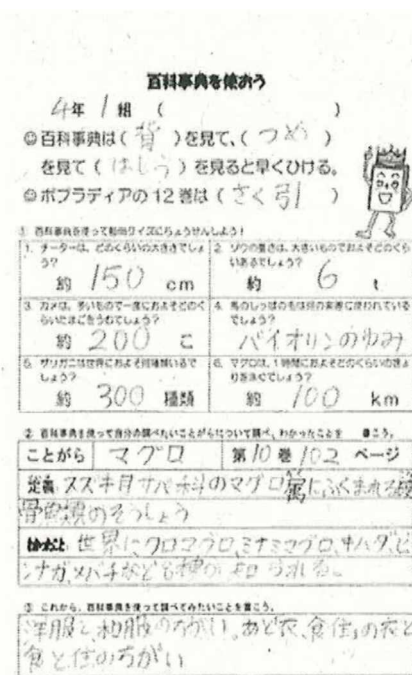 百科事典を使おう
4年 1組 ( )
☺百科事典は( 背 )を見て、( つめ )
を見て( はしら )を見ると早くひける。
☺ポプラディアの12巻は( さく引 )
① 百科事典を使って動物クイズにちょうせんしよう!
1. チーターは、どのくらいの大きさでしょ
う?
約 150 cm
2. ゾウの重さは、大きいものでおよそどのくら
いあるでしょう?
約 6 t
3. カメは、多いもので一度におよそどのく
らいたまごをうむでしょう?
約 200 こ
4. 馬のしっぽの毛は何の楽器に使われている
でしょう?
バイオリンのゆみ
5. ザリガニは世界におよそ何種類いるで
しょう?
約 300 種類
6. マグロは、1時間におよそどのくらいの速
りを泳ぐでしょう?
約 100 km
② 百科事典を使って自分の調べたいことがらについて調べ、わかったことを 書こう。
ことがら マグロ 第10巻 102 ページ
定義 スズキ目サバ科のマグロ属にふくまれる硬
骨魚類のそうしょう
わかったこと 世界に、クロマグロ、ミナミマグロ、キハダ、ビ
ンナガ、メバチなど 種が知られる。
③ これから、百科事典を使って調べてみたいことを書こう。
洋服と、和服のちがい。あと衣、食住、の衣と
食と住のちがい